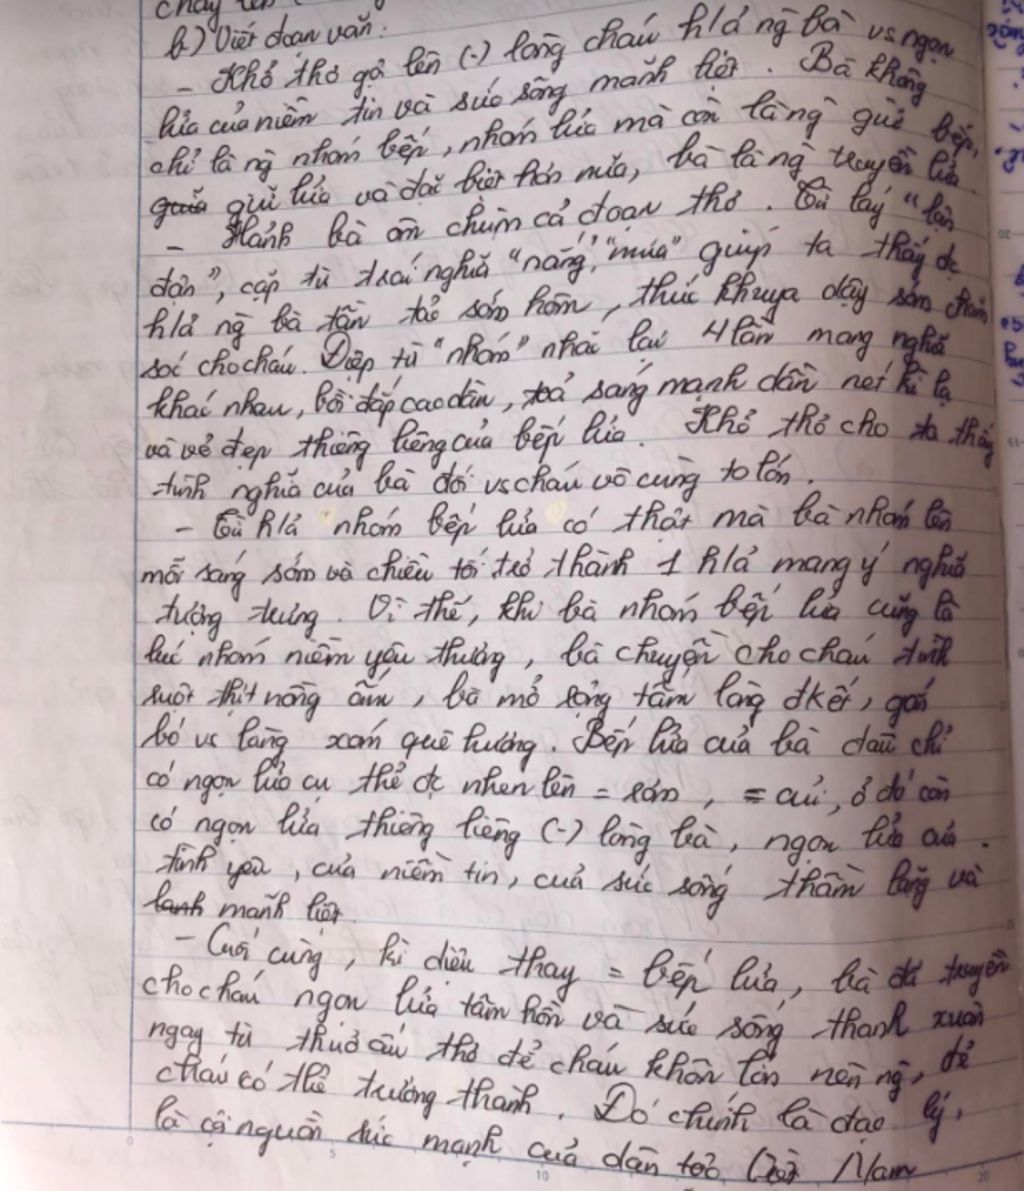 b) Viết đoạn văn:
- Khổ thơ gợi lên (-) lòng cháu h/ả ng̀ bà vs ngọn
lửa của niềm tin và sức sống mãnh liệt. Bà không
chỉ là ng̀ nhóm bếp, nhóm lửa mà còn là ng̀ giữ bếp,
giữ lửa và đặc biệt hơn nữa, bà là ng̀ truyền lửa.
- Hành bà ôm chùm cả đoạn thơ. Từ láy "lận
đận", cặp từ trái nghĩa "nắng", "mưa" giúp ta thấy đc
h/ả ng̀ bà tần tảo sớm hôm, thức khuya dậy sớm chăm
sóc cho cháu. Điệp từ "nhóm" nhắc lại 4 lần mang nghĩa
khác nhau, bồi đắp cao dần, toả sáng mạnh dần nét kì lạ
và vẻ đẹp thiêng liêng của bếp lửa. Khổ thơ cho ta thấy
tình nghĩa của bà đối vs cháu vô cùng to lớn.
- Từ h/ả nhóm bếp lửa có thật mà bà nhóm lên
mỗi sáng sớm và chiều tối trở thành 1 h/ả mang ý nghĩa
tượng trưng. Vì thế, khi bà nhóm bếp lửa cũng là
lúc nhóm niềm yêu thương, bà chuyện cho cháu tình
ruột thịt nồng ấm, bà mở rộng tấm lòng đkết, gắn
bó vs làng xóm quê hương. Bếp lửa của bà đâu chỉ
có ngọn lửa cụ thể đc nhen lên = rơm, = củi, ở đó còn
có ngọn lửa thiêng liêng (-) lòng bà, ngọn lửa của
tình yêu, của niềm tin, của sức sống thầm lặng và
mãnh liệt.
- Cuối cùng, kì diệu thay = bếp lửa, bà đã truyền
cho cháu ngọn lửa tâm hồn và sức sống thanh xuân
ngay từ thuở ấu thơ để cháu khôn lớn nên ng̀, để
cháu có thể trưởng thành. Đó chính là đạo lý,
là cội nguồn sức mạnh của dân tộc Việt Nam